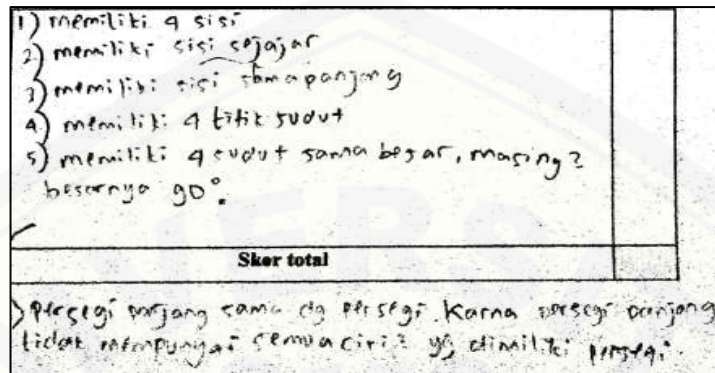 1) memiliki 4 sisi
2) memiliki sisi sejajar
3) memiliki sisi sama panjang
4) memiliki 4 titik sudut
5) memiliki 4 sudut sama besar, masing2
besarnya 90°.
Skor total
> persegi panjang sama dg persegi. Karna persegi panjang
tidak mempunyai semua ciri2 yg dimiliki persegi.